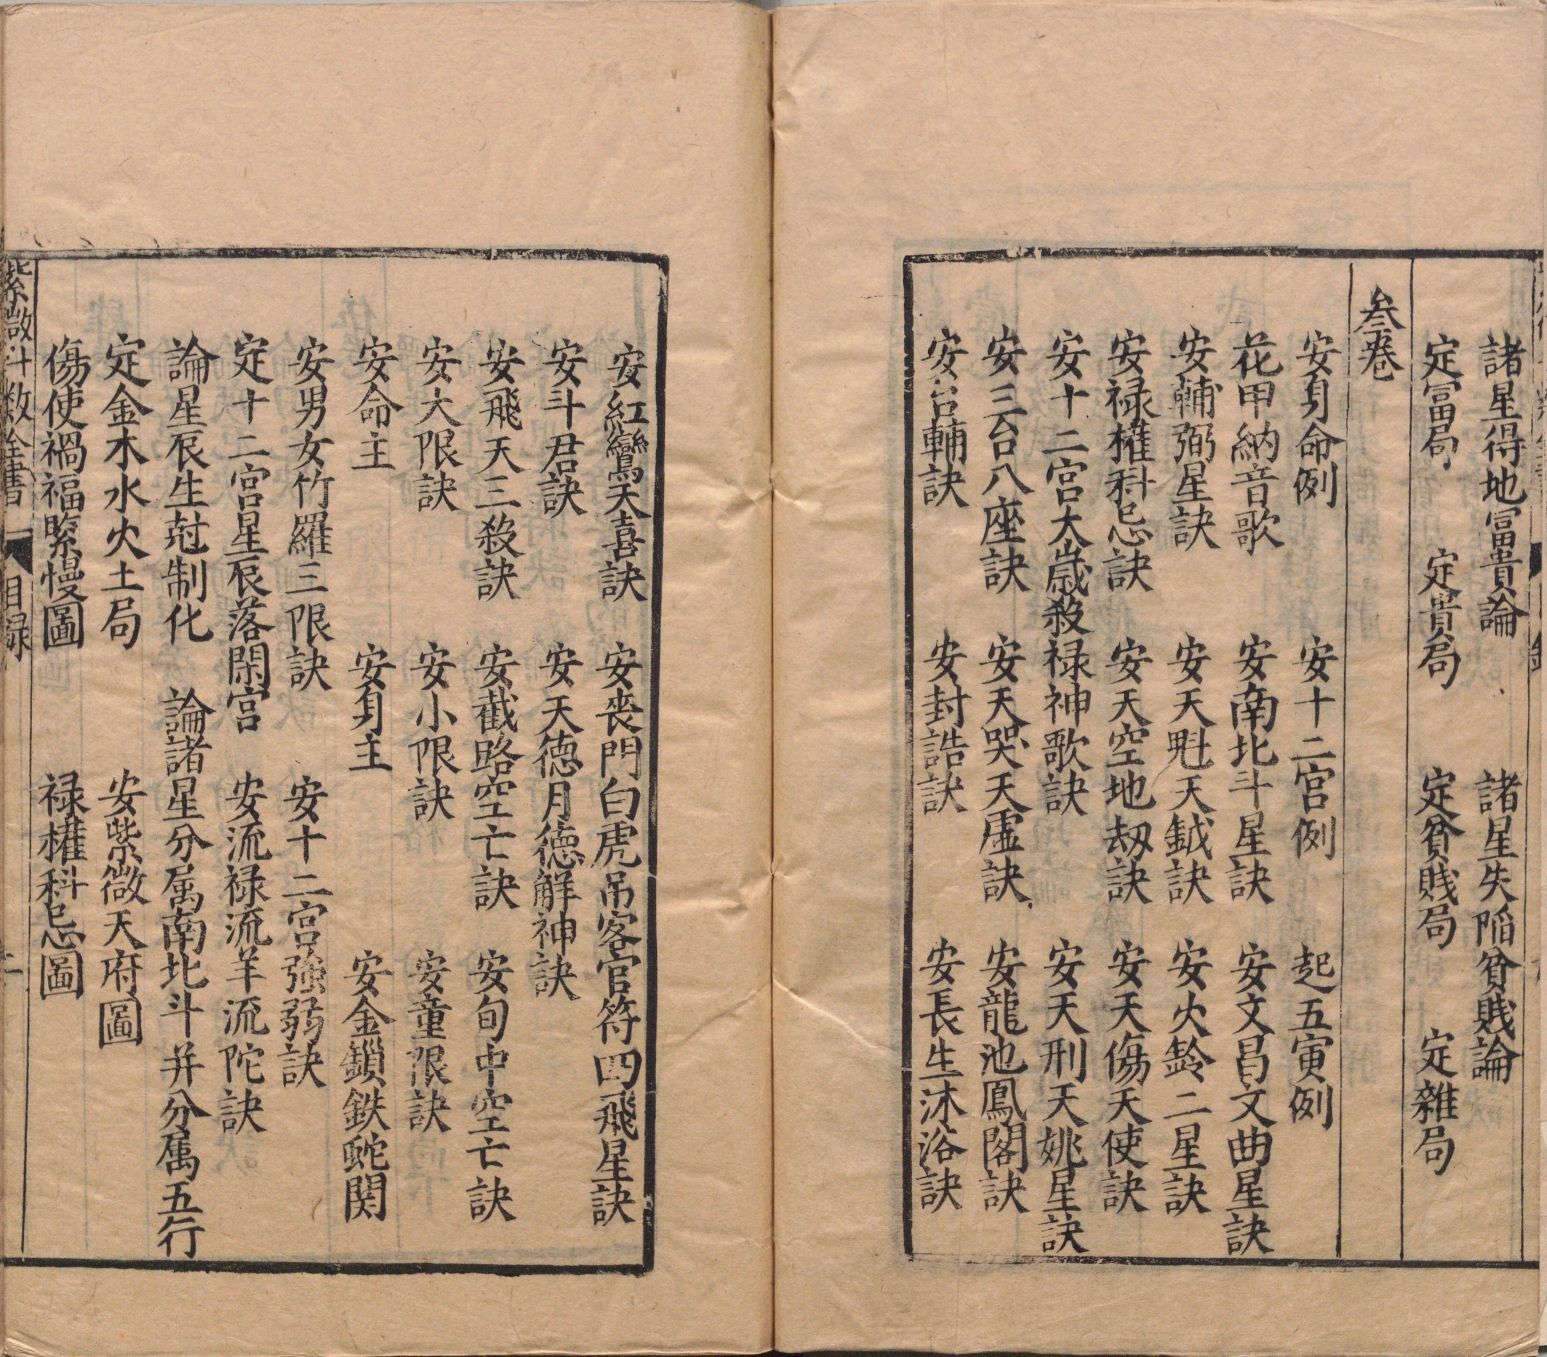 諸星得地冨貴論　諸星失陥貧賎論
定冨局　定貴局　定貧賎局　定雜局
叁卷
安身命例　安十二宮例　起五寅例
花甲納音歌　安南北斗星訣　安文昌文曲星訣
安輔弼星訣　安天魁天鉞訣　安火鈴二星訣
安禄權科忌訣　安天空地刼訣　安天傷天使訣
安十二宮太歲殺禄神歌訣　安天刑天姚星訣
安三台八座訣　安天哭天虛訣　安龍池鳳閣訣
安台輔訣　安封誥訣　安長生沐浴訣
安紅鸞天喜訣　安丧門白虎吊客官符四飛星訣
安斗君訣　安天德月德解神訣
安飛天三殺訣　安截路空亡訣　安旬中空亡訣
安大限訣　安小限訣　安童限訣
安命主　安身主　安金鎖鉄蛇関
安男女竹羅三限訣　安十二宮強弱訣
定十二宮星辰落閑宮　安流禄流羊流陀訣
論星辰生尅制化　論諸星分属南北斗并分属五行
定金木水火土局　安紫微天府圖
傷使禍福緊慢圖　禄權科忌圖
紫微斗数全書　目録　二